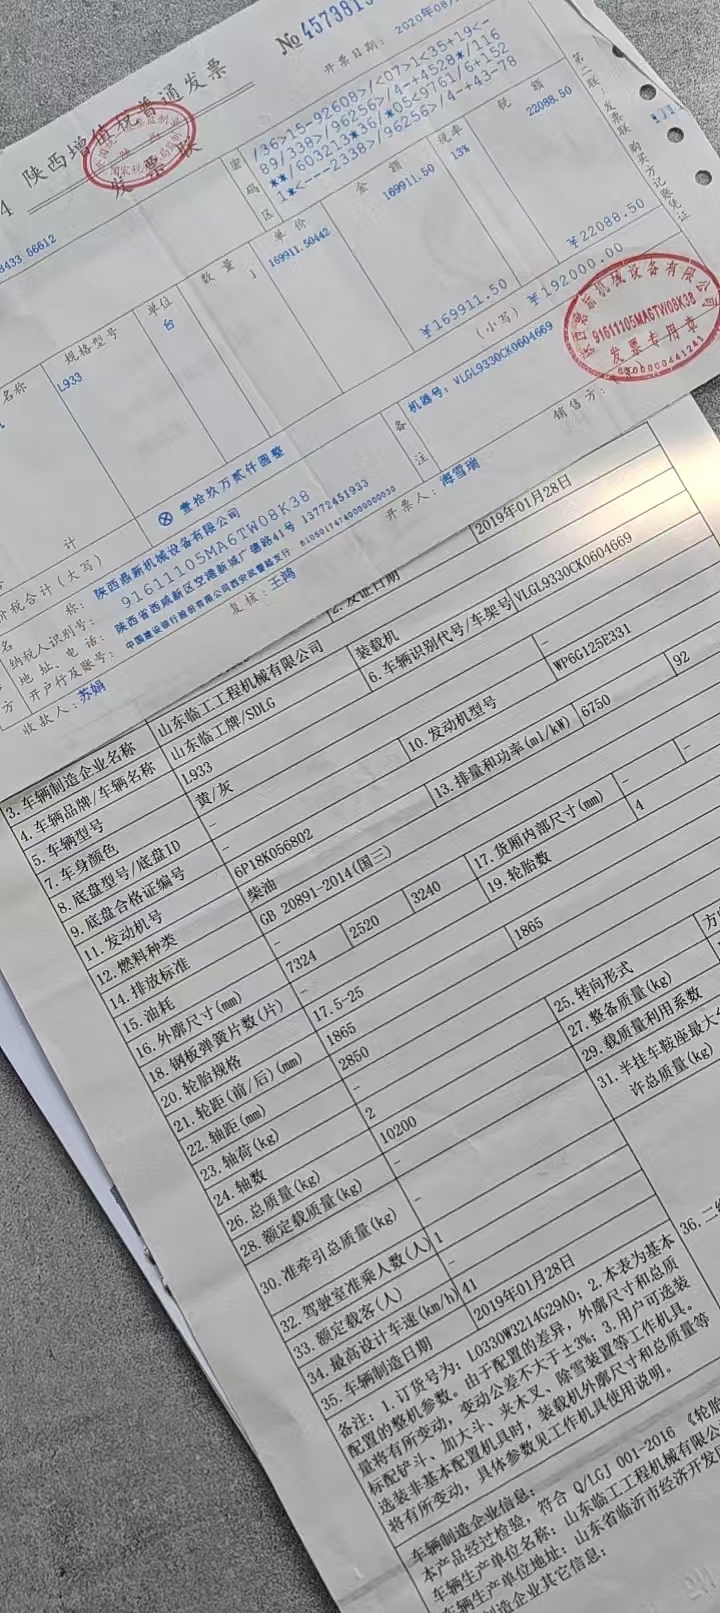 № 4573819
开票日期: 2020年08
陕西增值税普通发票
发票联
8433 56612
密码区
/36>15-92608>/<07>1<35+19<-
89/338>/96256>/4-+4528*/116
**/603213*36/*05<9761/6+152
1*<----2338>/96256>/4-+43-78
第二联:发票联 购买方记账凭证
名称
规格型号
单位
数量
单价
金额
税率
税额
L933
台
1
169911.50442
169911.50
13%
22088.50
计
¥169911.50
¥22088.50
价税合计(大写)
⊗ 壹拾玖万贰仟圆整
(小写) ¥192000.00
称: 陕西咸新机械设备有限公司
纳税人识别号: 91611105MA6TW08K38
地址、电话: 陕西省西咸新区空港新城广德路41号 13772451933
开户行及账号:
备注
机器号: VLGL9330CK0604669
收款人: 苏娟
复核: 王鸿
开票人: 海雪瑞
销售方:
91611105MA6TW08K38
发票专用章
2. 发证日期
2019年01月28日
3. 车辆制造企业名称
山东临工工程机械有限公司
4. 车辆品牌/车辆名称
山东临工牌/SDLG
装载机
5. 车辆型号
L933
6. 车辆识别代号/车架号
VLGL9330CK0604669
7. 车身颜色
黄/灰
8. 底盘型号/底盘ID
-
-
9. 底盘合格证编号
-
10. 发动机型号
WP6G125E331
11. 发动机号
6P18K056802
12. 燃料种类
柴油
13. 排量和功率(ml/kW)
6750
92
14. 排放标准
GB 20891-2014(国三)
15. 油耗
-
16. 外廓尺寸(mm)
7324
2520
3240
17. 货厢内部尺寸(mm)
-
-
18. 钢板弹簧片数(片)
-
19. 轮胎数
4
20. 轮胎规格
17.5-25
21. 轮距(前/后)(mm)
1865
1865
22. 轴距(mm)
2850
23. 轴荷(kg)
-
24. 轴数
2
25. 转向形式
方
26. 总质量(kg)
10200
27. 整备质量(kg)
28. 额定载质量(kg)
-
29. 载质量利用系数
30. 准牵引总质量(kg)
-
31. 半挂车鞍座最大
许总质量(kg)
32. 驾驶室准乘人数(人)
1
33. 额定载客(人)
-
34. 最高设计车速(km/h)
41
35. 车辆制造日期
2019年01月28日
36. 二
备注: 1. 订货号为: L0330W3214G29A0; 2. 本表为基本
配置的整机参数。由于配置的差异,外廓尺寸和总质
量将有所变动,变动公差不大于±3%; 3. 用户可选装
标配铲斗、加大斗、夹木叉、除雪装置等工作机具。
选装非基本配置机具时,装载机外廓尺寸和总质量等
将有所变动,具体参数见工作机具使用说明。
车辆制造企业信息:
本产品经过检验,符合 Q/LGJ 001-2016 《轮胎
车辆生产单位名称: 山东临工工程机械有限公
车辆生产单位地址: 山东省临沂市经济开发
制造企业其它信息: